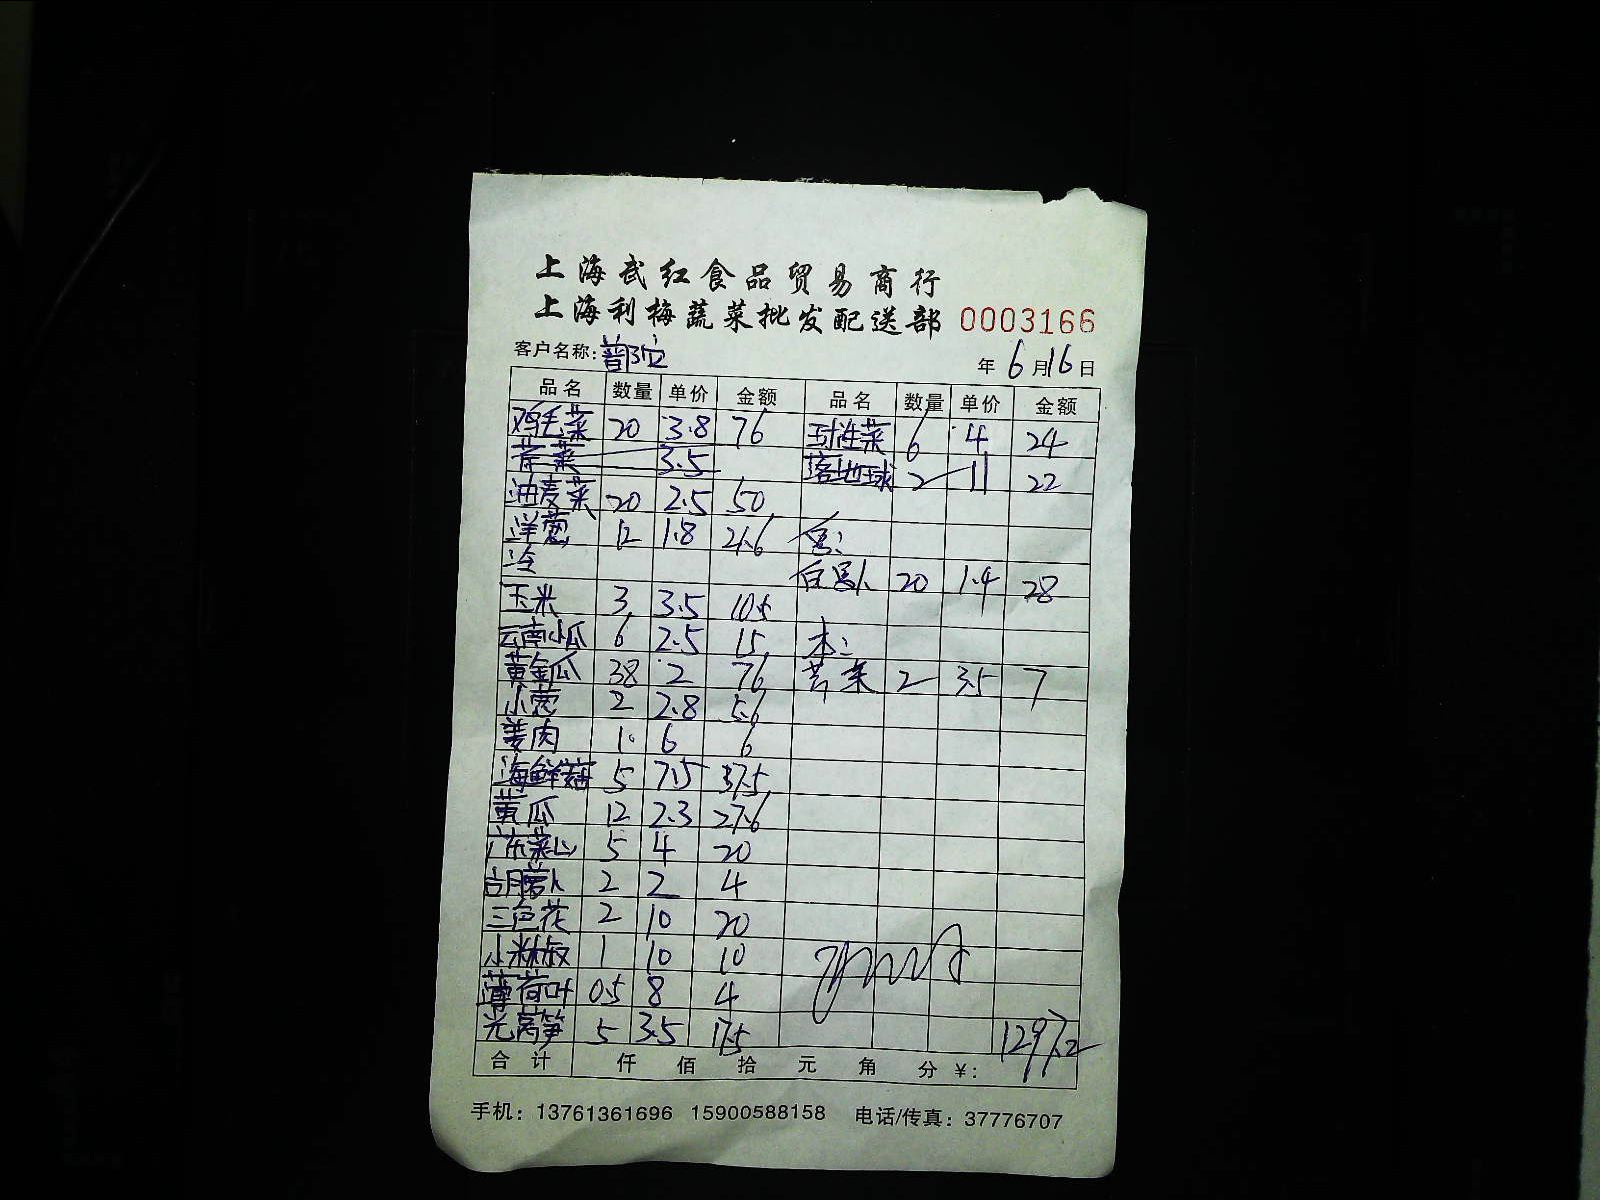 上海武红食品贸易商行
上海利梅蔬菜批发配送部 0003166
客户名称: 年 6 月 16 日
品名 数量 单价 金额 品名 数量 单价 金额
鸡毛菜 20 3.8 76 6 4 24
3.5 落地球 2 11 22
油麦菜 20 2.5 50
洋葱 12 1.8 21.6
冷 20 1.4 28
玉米 3 3.5 10.5
云南小瓜 6 2.5 15
黄金瓜 38 2 76 2 3.5 7
小葱 2 2.8 5.6
姜肉 1 6 6
海鲜菇 5 7.5 37.5
黄瓜 12 2.3 27.6
广东菜心 5 4 20
胡萝卜 2 2 4
三色花 2 10 20
小米椒 1 10 10
薄荷叶 0.5 8 4
光莴笋 5 3.5 17.5
1297.2
合计 仟 佰 拾 元 角 分 ¥:
手机: 13761361696 15900588158 电话/传真: 37776707